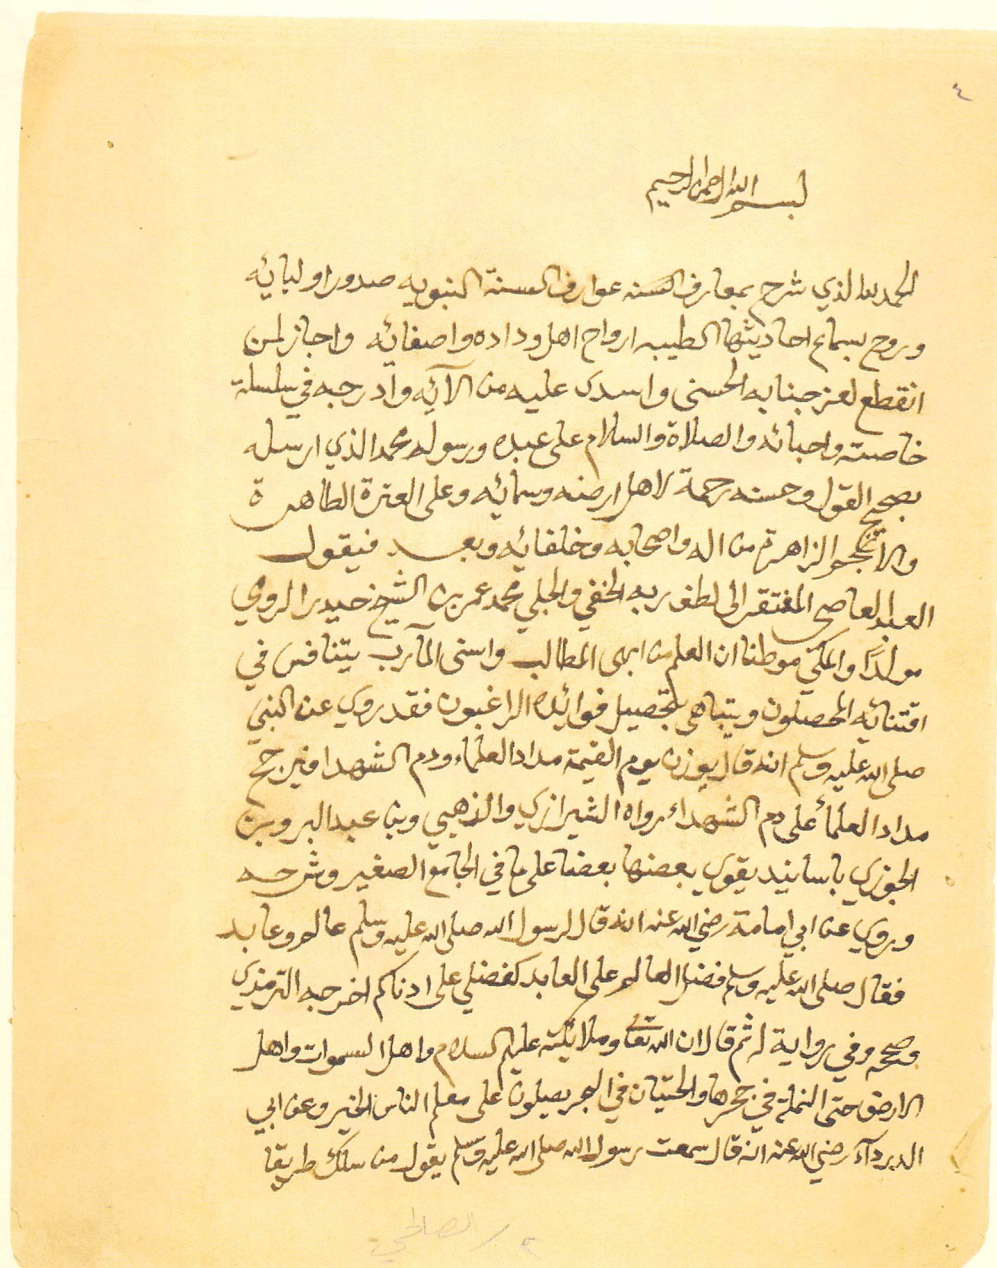 ٤
بسم الله الرحمن الرحيم
الحمد لله الذي شرح بمعارف السنه عوارف السنة النبويه صدور اوليائه
وروح بسماع احاديثها الطيبه ارواح اهل وداده واصفائه واجاز لمن
انقطع لعز جنابه الحسنى واسدى عليه من الآئه وادرجه في سلسلة
خاصته واحبائه والصلاة والسلام على عبده ورسوله محمد الذي ارسله
بصحيح القول وحسنه رحمة لاهل ارضه وسمائه وعلى العترة الطاهرة
والانجم الزاهرة من اله واصحابه وخلفائه وبعد فيقول
العبد العاصي المفتقر الى لطف ربه الخفي والجلي محمد عمر بن الشيخ حيدر الرومي
مولدًا والمكي موطنا ان العلم من ابهى المطالب واسنى المآرب يتنافس في
اقتنائه المحصلون ويتباهى بتحصيل فوائده الراغبون فقد روي عن النبي
صلى الله عليه وسلم انه قال يوزن يوم القيمة مداد العلماء ودم الشهدا فيرجح
مداد العلماء على دم الشهداء رواه الشيرازي والذهبي وبن عبد البر وبن
الجوزي باسانيد يقوي بعضها بعضا على ما في الجامع الصغير وشرحه
وروي عن ابي امامة رضي الله عنه انه قال لرسول الله صلى الله عليه وسلم عالم وعابد
فقال صلى الله عليه وسلم فضل العالم على العابد كفضلي على ادناكم اخرجه الترمذي
وصححه وفي رواية له ثم قال ان الله تعالى وملائكته عليهم السلام واهل السموات واهل
الارض حتى النملة في جحرها والحيتان في البحر يصلون على معلم الناس الخير وعن ابي
الدرداء رضي الله عنه انه قال سمعت رسول الله صلى الله عليه وسلم يقول من سلك طريقا